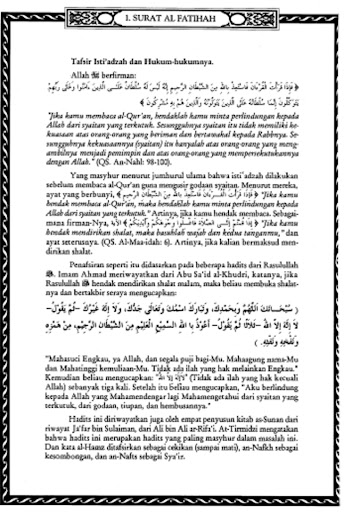 1. SURAT AL FATIHAH
Tafsir Isti'adzah dan Hukum-hukumnya.
Allah ﷻ berfirman:
﴿ فَإِذَا قَرَأْتَ الْقُرْءَانَ فَاسْتَعِذْ بِاللَّهِ مِنَ الشَّيْطَانِ الرَّجِيمِ إِنَّهُ لَيْسَ لَهُ سُلْطَانٌ عَلَى الَّذِينَ ءَامَنُوا وَعَلَى رَبِّهِمْ
يَتَوَكَّلُونَ إِنَّمَا سُلْطَانُهُ عَلَى الَّذِينَ يَتَوَلَّوْنَهُ وَالَّذِينَ هُم بِهِ مُشْرِكُونَ ﴾
"Jika kamu membaca al-Qur'an, hendaklah kamu minta perlindungan kepada
Allah dari syaitan yang terkutuk. Sesungguhnya syaitan itu tidak memiliki ke-
kuasaan atas orang-orang yang beriman dan bertawakal kepada Rabbnya. Se-
sungguhnya kekuasaannya (syaitan) itu hanyalah atas orang-orang yang meng-
ambilnya menjadi pemimpin dan atas orang-orang yang mempersekutukannya
dengan Allah." (QS. An-Nahl: 98-100).
Yang masyhur menurut jumhurul ulama bahwa isti'adzah dilakukan
sebelum membaca al-Qur'an guna mengusir godaan syaitan. Menurut mereka,
ayat yang berbunyi, ﴿ فَإِذَا قَرَأْتَ الْقُرْءَانَ فَاسْتَعِذْ بِاللَّهِ مِنَ الشَّيْطَانِ الرَّجِيمِ ﴾ "Jika kamu
hendak membaca al-Qur'an, maka hendaklah kamu minta perlindungan kepada
Allah dari syaitan yang terkutuk." Artinya, jika kamu hendak membaca. Sebagai-
mana firman-Nya, ﴿ إِذَا قُمْتُمْ إِلَى الصَّلَاةِ فَاغْسِلُوا وُجُوهَكُمْ وَأَيْدِيَكُمْ ﴾ "Jika kamu
hendak mendirikan shalat, maka basuhlah wajah dan kedua tanganmu," dan
ayat seterusnya. (QS. Al-Maa-idah: 6). Artinya, jika kalian bermaksud men-
dirikan shalat.
Penafsiran seperti itu didasarkan pada beberapa hadits dari Rasulullah
ﷺ. Imam Ahmad meriwayatkan dari Abu Sa'id al-Khudri, katanya, jika
Rasulullah ﷺ hendak mendirikan shalat malam, maka beliau membuka shalat-
nya dan bertakbir seraya mengucapkan:
( سُبْحَانَكَ اللَّهُمَّ وَبِحَمْدِكَ، وَتَبَارَكَ اسْمُكَ وَتَعَالَى جَدُّكَ، وَلَا إِلَهَ غَيْرُكَ –ثُمَّ يَقُولُ–
لَا إِلَهَ إِلَّا اللهُ –ثَلَاثًا ثُمَّ يَقُولُ– أَعُوذُ بِاللهِ السَّمِيعِ الْعَلِيمِ مِنَ الشَّيْطَانِ الرَّجِيمِ، مِنْ هَمْزِهِ
وَنَفْخِهِ وَنَفْثِهِ. )
"Mahasuci Engkau, ya Allah, dan segala puji bagi-Mu. Mahaagung nama-Mu
dan Mahatinggi kemuliaan-Mu. Tidak ada ilah yang hak melainkan Engkau."
Kemudian beliau mengucapkan: "لَا إِلَهَ إِلَّا اللهُ" (Tidak ada ilah yang hak kecuali
Allah) sebanyak tiga kali. Setelah itu beliau mengucapkan, "Aku berlindung
kepada Allah yang Mahamendengar lagi Mahamengetahui dari syaitan yang
terkutuk, dari godaan, tiupan, dan hembusannya."
Hadits ini diriwayatkan juga oleh empat penyusun kitab as-Sunan dari
riwayat Ja'far bin Sulaiman, dari Ali bin Ali ar-Rifa'i. At-Tirmidzi mengatakan
bahwa hadits ini merupakan hadits yang paling masyhur dalam masalah ini.
Dan kata al-Hamz ditafsirkan sebagai cekikan (sampai mati), an-Nafkh sebagai
kesombongan, dan an-Nafts sebagai Sya'ir.